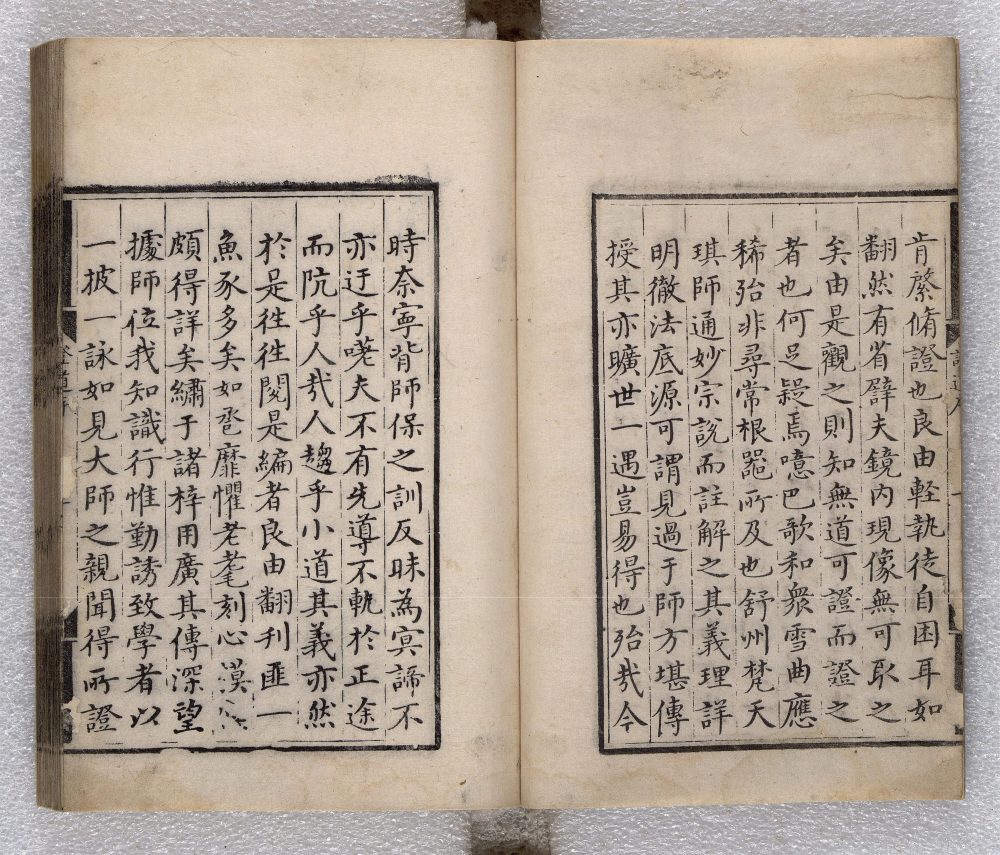 肯綮脩證也良由軽執徒自困耳如
翻然有省譬夫鏡内現像無可取之
矣由是觀之則知無道可證而證之
者也何足疑焉噫巴歌和衆雪曲應
稀殆非尋常根器所及也舒州梵天
琪師通妙宗說而註解之其義理詳
明徹法底源可謂見過于師方堪傳
授其亦曠世一遇豈易得也殆㢤今
時奈寧背師保之訓反昧為㝠諦不
亦迂乎嗟夫不有先導不軌於正途
而阬乎人㢤人趨乎小道其義亦然
於是徃徃閱是編者良由翻刋匪一
魚豕多矣如
靡懼老耄刻心漠
頗得詳矣繡于諸梓用廣其傳深望
據師位我知識行惟勤誘致學者以
一披一詠如見大師之親聞得所證